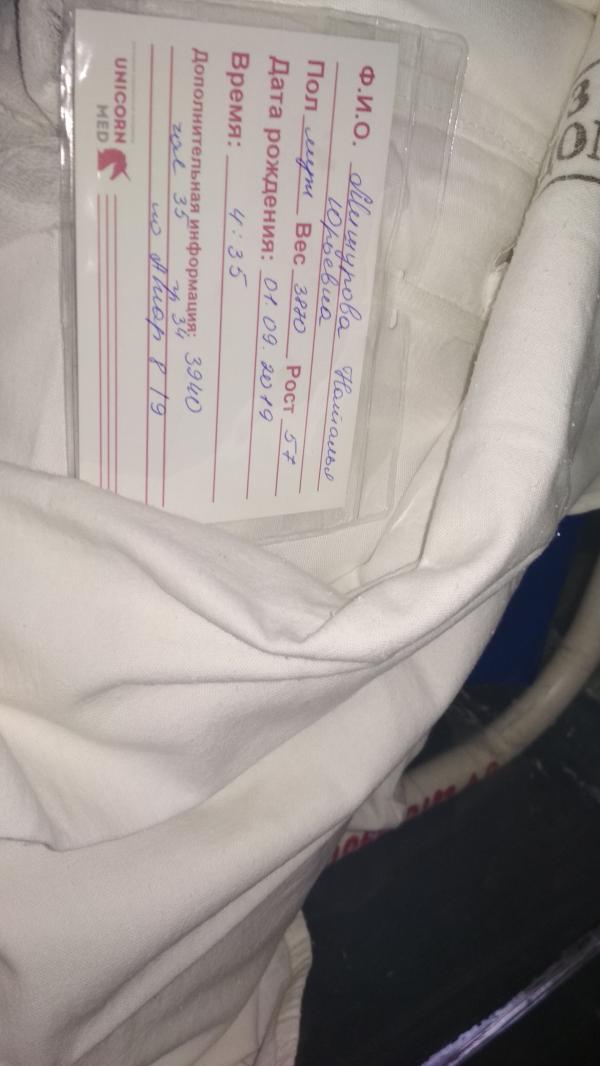 Ф.И.О. Мишурова Наталья
Юрьевна
Пол муж Вес 3870 Рост 57
Дата рождения: 01.09.2019
Время: 4:35
Дополнительная информация: 3940
гол 35 гр 34
по Апгар 8/9
UNICORN
MED